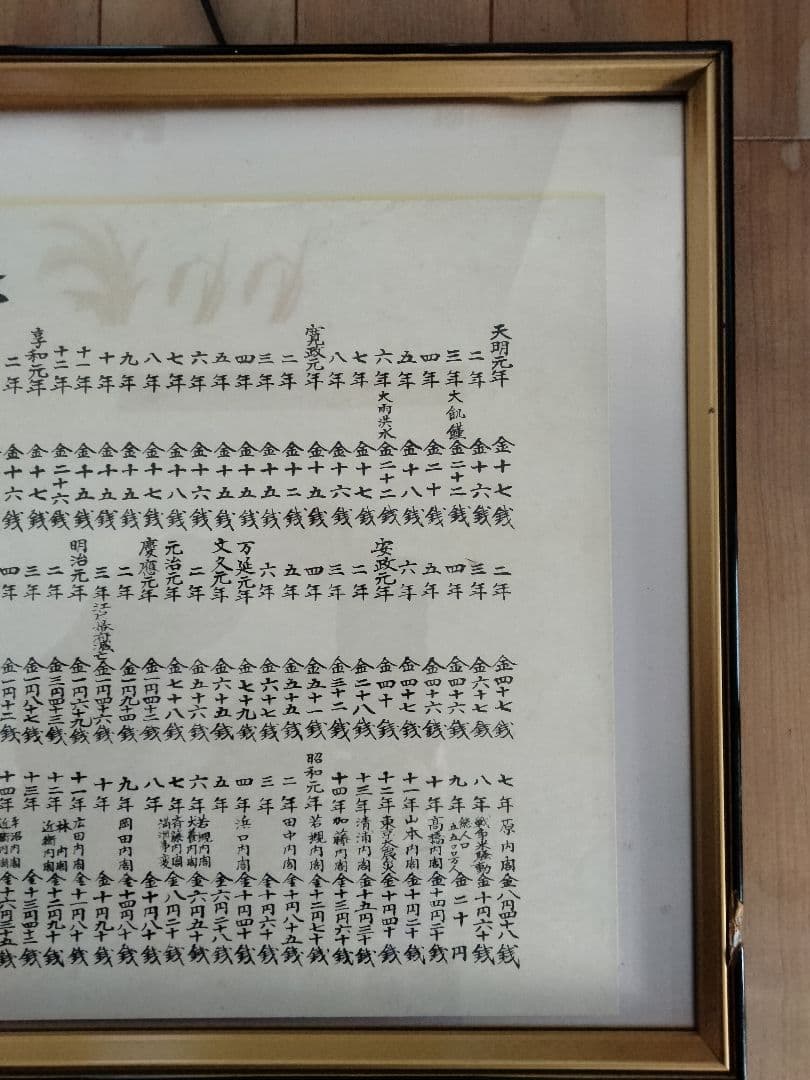 天明元年 金十七銭
二年 金十六銭
三年 大飢饉 金二十二銭
四年 金二十銭
五年 金十八銭
六年 大雨洪水 金二十二銭
七年 金十七銭
八年 金十六銭
寛政元年 金十五銭
二年 金十二銭
三年 金十五銭
四年 金十五銭
五年 金十五銭
六年 金十六銭
七年 金十八銭
八年 金十七銭
九年 金十五銭
十年 金十五銭
十一年 金十五銭
十二年 金二十六銭
享和元年 金十七銭
二年 金十六銭
二年 金四十七銭
三年 金六十七銭
四年 金四十六銭
五年 金四十六銭
六年 金四十七銭
安政元年 金四十銭
二年 金二十八銭
三年 金三十二銭
四年 金五十一銭
五年 金五十五銭
六年 金六十七銭
万延元年 金七十九銭
文久元年 金六十五銭
二年 金五十六銭
元治元年 金七十八銭
慶應元年 金一円四十二銭
二年 金一円九十四銭
三年 江戸幕府滅亡 金一円四十六銭
明治元年 金一円六十九銭
二年 金三円四十三銭
三年 金一円八十七銭
四年 金一円十二銭
七年 原内閣 金八円四十八銭
八年 戦帝米騒動 金十円六十銭
九年 総人口 五五〇〇万人 金二十円
十年 高橋内閣 金十四円二十銭
十一年 山本内閣 金十円二十銭
十二年 東京大震災 金十円四十銭
十三年 清浦内閣 金十五円三十銭
十四年 加藤内閣 金十三円六十銭
昭和元年 若槻内閣 金十二円七十銭
二年 田中内閣 金十円八十五銭
三年 金十円六十銭
四年 浜口内閣 金十円四十銭
五年 金六円二十八銭
六年 若槻内閣 犬養内閣 金六円五十銭
七年 斉藤内閣 満洲事変 金八円二十銭
八年 金十円八十銭
九年 岡田内閣 金十四円八十銭
十年 金十円九十銭
十一年 広田内閣 金十一円八十銭
十二年 林内閣 近衛内閣 金十二円九十銭
十三年 金十三円四十二銭
十四年 平沼内閣 近衛内閣 金十六円三十五銭